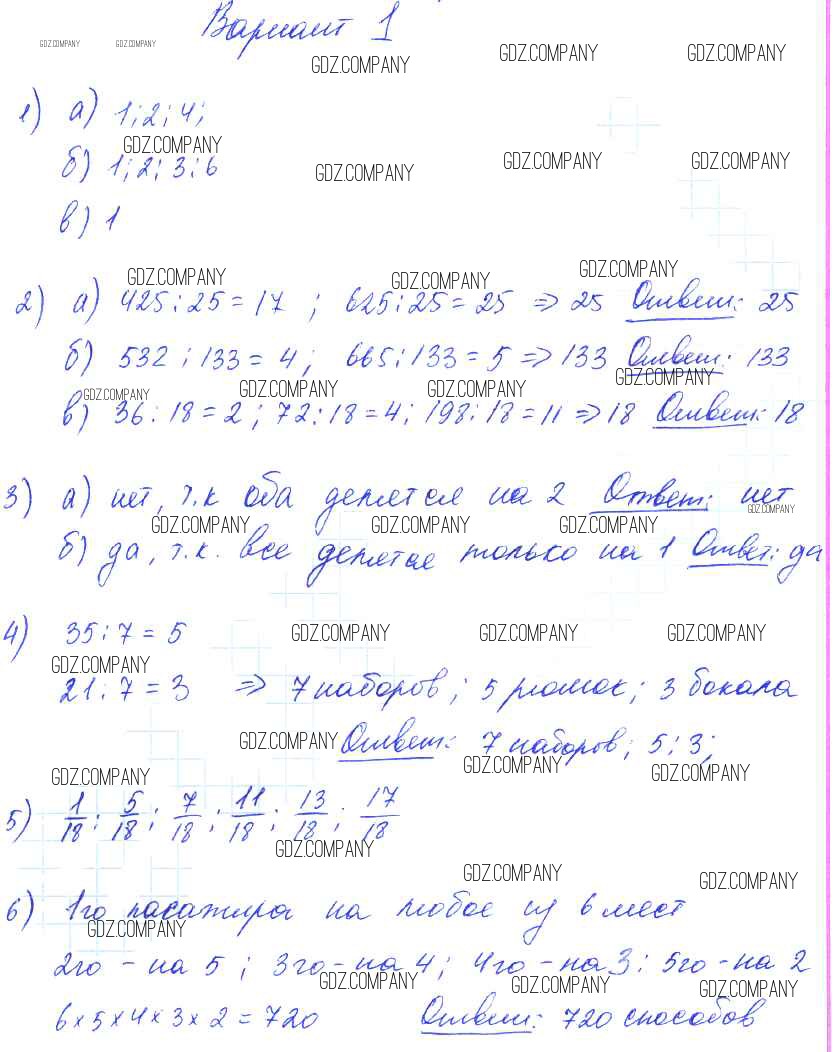 Вариант 1
GDZ.COMPANY GDZ.COMPANY GDZ.COMPANY GDZ.COMPANY GDZ.COMPANY
1) а) 1; 2; 4;
GDZ.COMPANY
б) 1; 2; 3; 6 GDZ.COMPANY GDZ.COMPANY GDZ.COMPANY
в) 1
GDZ.COMPANY GDZ.COMPANY GDZ.COMPANY
2) а) 425 : 25 = 17 ; 625 : 25 = 25 => 25 Ответ: 25
б) 532 : 133 = 4; 665 : 133 = 5 => 133 Ответ: 133
GDZ.COMPANY GDZ.COMPANY GDZ.COMPANY GDZ.COMPANY
в) 36 : 18 = 2 ; 72 : 18 = 4; 198 : 18 = 11 => 18 Ответ: 18
3) а) нет, т.к оба делятся на 2 Ответ: нет
GDZ.COMPANY GDZ.COMPANY GDZ.COMPANY GDZ.COMPANY
б) да, т.к. все делятся только на 1 Ответ: да
4) 35 : 7 = 5 GDZ.COMPANY GDZ.COMPANY GDZ.COMPANY
GDZ.COMPANY
21 : 7 = 3 => 7 наборов; 5 рюмок; 3 бокала
GDZ.COMPANY Ответ: 7 наборов; 5; 3;
GDZ.COMPANY GDZ.COMPANY GDZ.COMPANY
5) 1/18; 5/18; 7/18; 11/18; 13/18; 17/18
GDZ.COMPANY
GDZ.COMPANY GDZ.COMPANY
6) 1го пасажира на любое из 6 мест
GDZ.COMPANY
2го - на 5 ; 3го - на 4; 4го - на 3; 5го - на 2
GDZ.COMPANY GDZ.COMPANY GDZ.COMPANY
6 x 5 x 4 x 3 x 2 = 720 Ответ: 720 способов